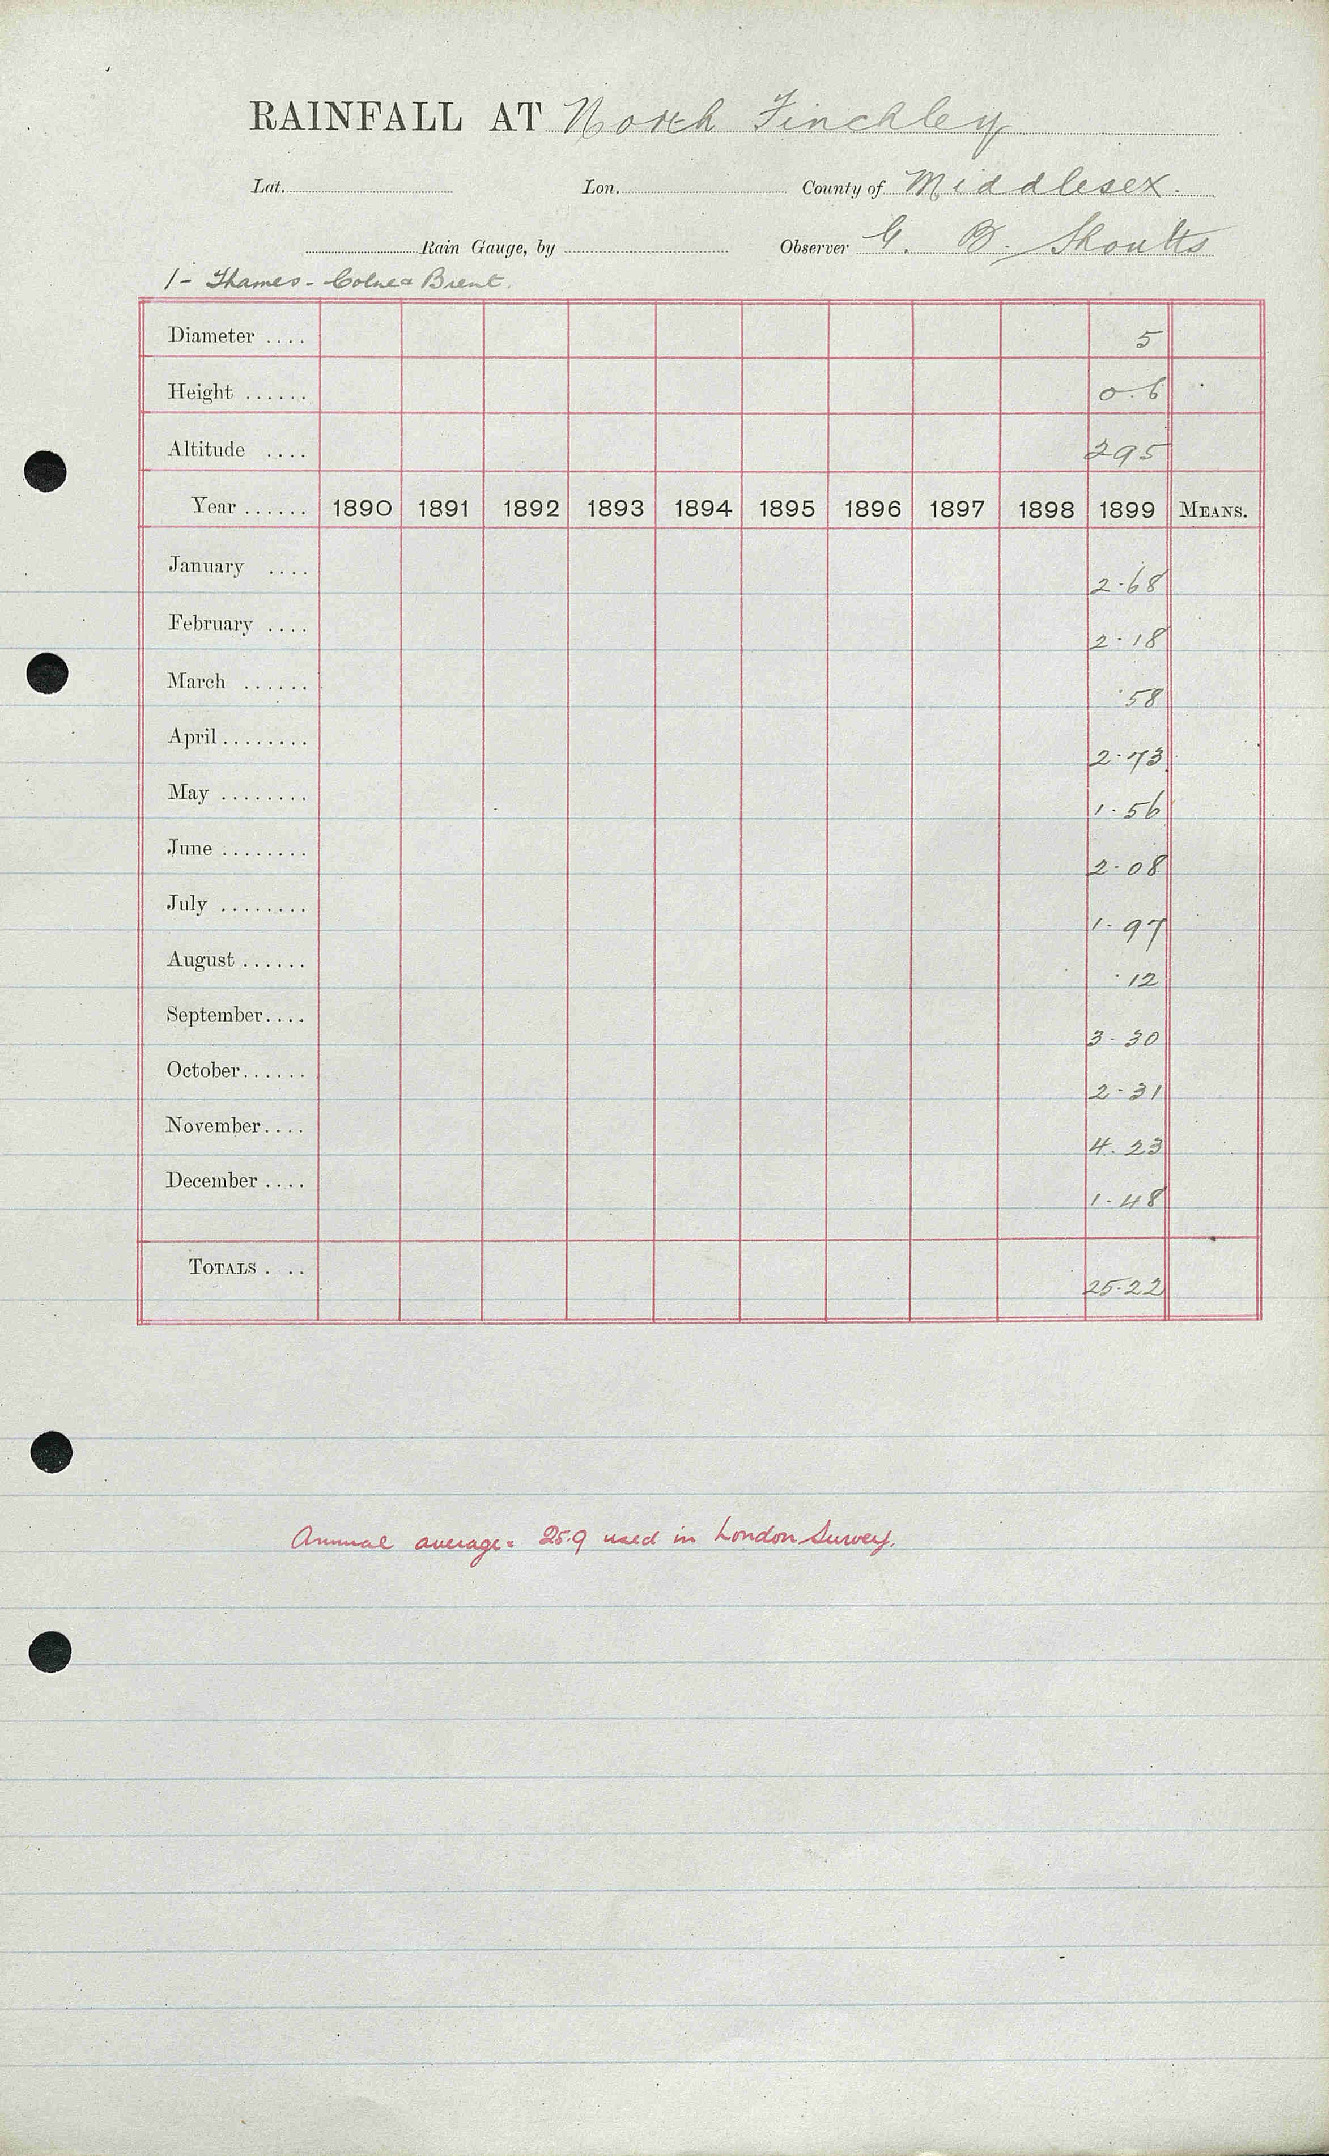 RAINFALL AT North Finchley
Lat. Lon. County of Middlesex.
Rain Gauge, by Observer G. B. Shoults
1 - Thames - Colne & Brent.
Diameter .... 5
Height ...... 0.6
Altitude .... 295
Year ...... 1890 1891 1892 1893 1894 1895 1896 1897 1898 1899 MEANS.
January .... 2.68
February .... 2.18
March ...... .58
April ........ 2.73
May ........ 1.56
June ........ 2.08
July ........ 1.97
August ...... .12
September.... 3.30
October...... 2.31
November.... 4.23
December .... 1.48
TOTALS . .. 25.22
Annual average = 25.9 used in London Survey.